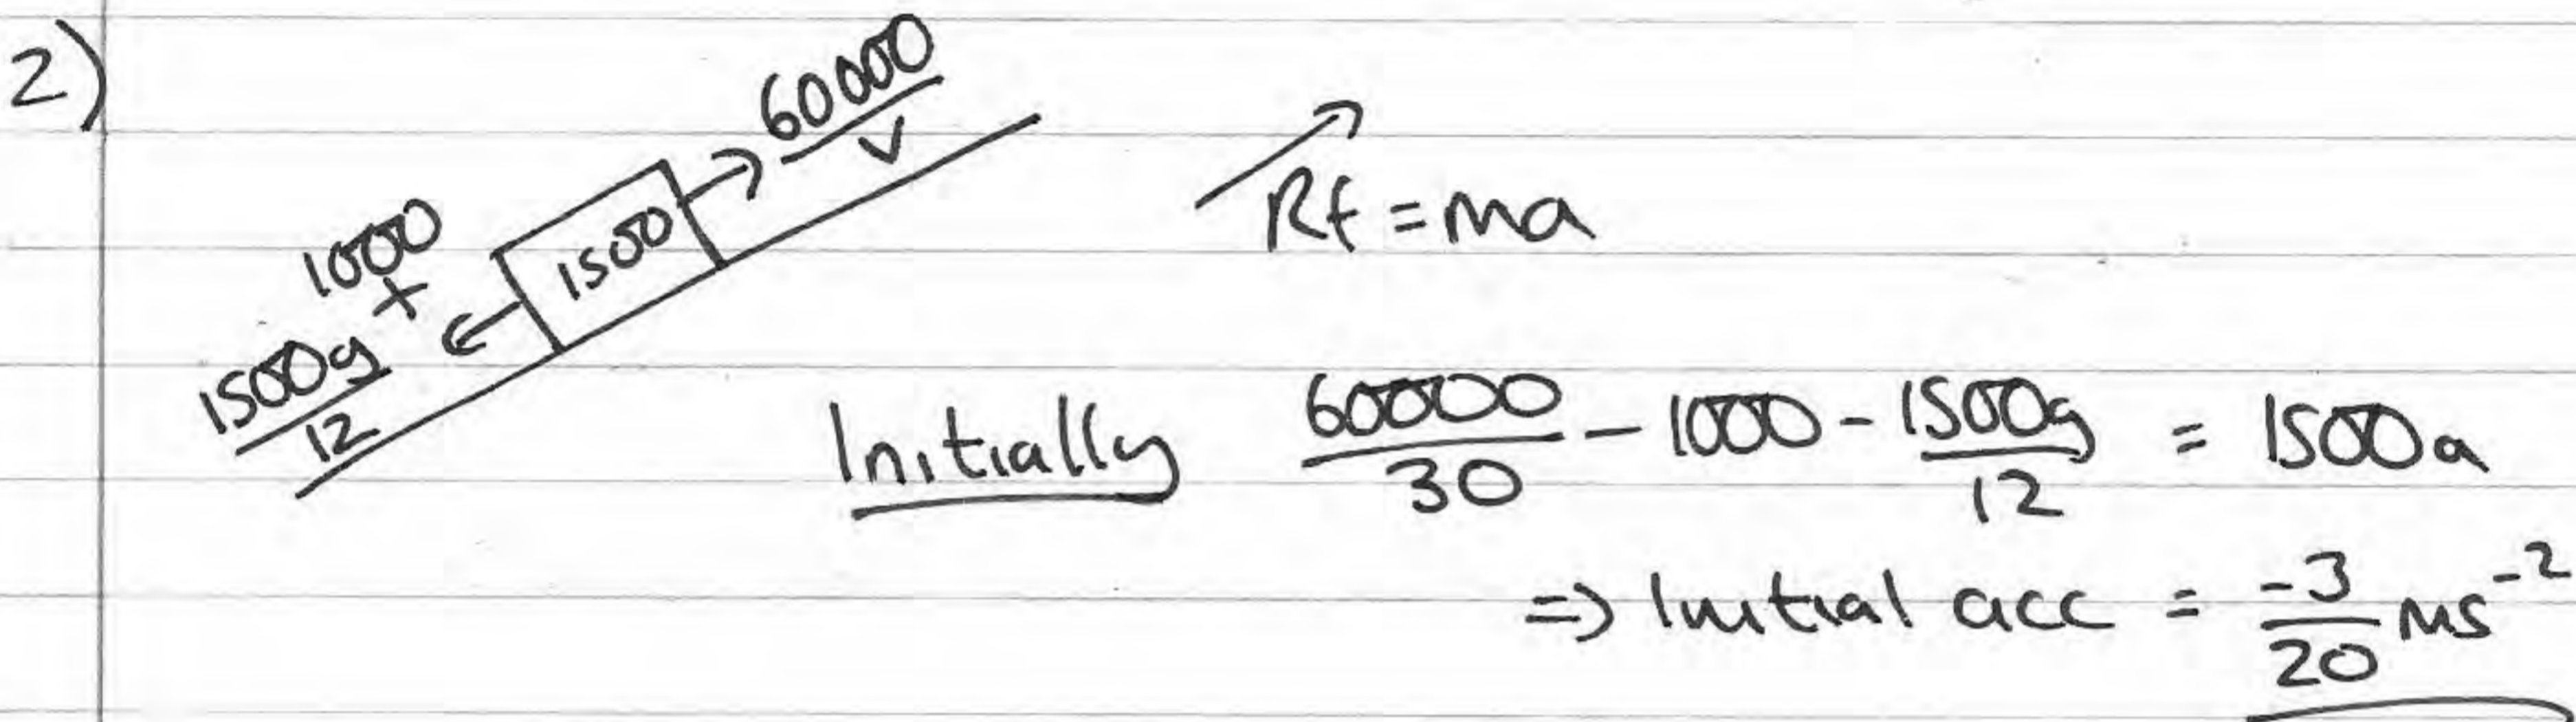 2)
60000
V
1000
+
1500g
12
1500
Rf = ma
Initially 60000/30 - 1000 - 1500g/12 = 1500a
=) Initial acc = -3/20 ms⁻²